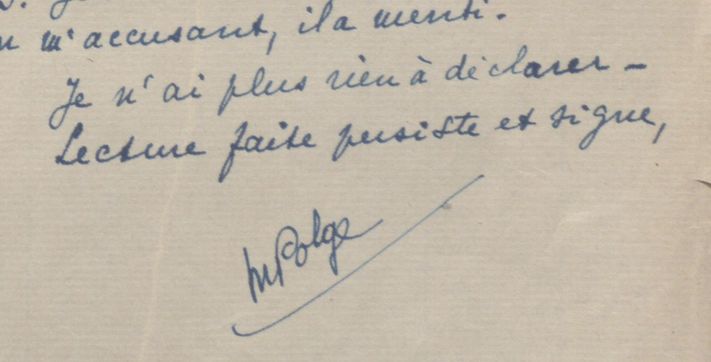 m'accusant, il a menti.
Je n'ai plus rien à déclarer -
Lecture faite persiste et signe,
MPolge